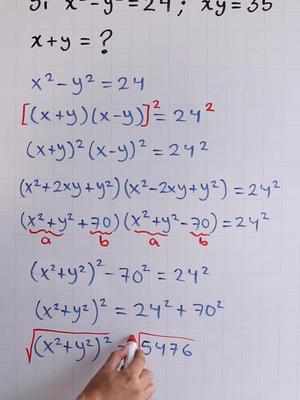 Si x² - y² = 24 ; xy = 35
x + y = ?
x² - y² = 24
[(x+y)(x-y)]² = 24²
(x+y)² (x-y)² = 24²
(x²+2xy+y²)(x²-2xy+y²) = 24²
(x²+y²+70)(x²+y²-70) = 24²
a b a b
(x²+y²)² - 70² = 24²
(x²+y²)² = 24² + 70²
√(x²+y²)² = √5476